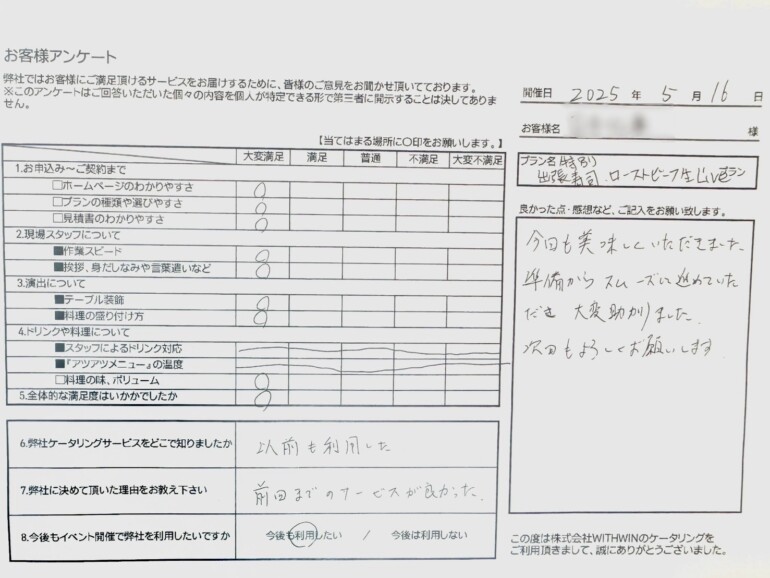 お客様アンケート
弊社ではお客様にご満足頂けるサービスをお届けするために、皆様のご意見をお聞かせ頂いております。
※このアンケートはご回答いただいた個々の内容を個人が特定できる形で第三者に開示することは決してありません。
【当てはまる場所に〇印をお願いします。】
大変満足 満足 普通 不満足 大変不満足
1.お申込み～ご契約まで
□ホームページのわかりやすさ ○
□プランの種類や選びやすさ ○
□見積書のわかりやすさ ○
2.現場スタッフについて
■作業スピード ○
■挨拶、身だしなみや言葉遣いなど ○
3.演出について
■テーブル装飾 ○
■料理の盛り付け方 ○
4.ドリンクや料理について
■スタッフによるドリンク対応
■『アツアツメニュー』の温度
□料理の味、ボリューム ○
5.全体的な満足度はいかがでしたか ○
6.弊社ケータリングサービスをどこで知りましたか 以前も利用した
7.弊社に決めて頂いた理由をお教え下さい 前回までのサービスが良かった。
8.今後もイベント開催で弊社を利用したいですか 今後も利用したい / 今後は利用しない
開催日 2025 年 5 月 16 日
お客様名 様
プラン名 特別
出張寿司・ローストビーフ生Liveプラン
良かった点・感想など、ご記入をお願い致します。
今回も美味しくいただきました
準備からスムーズに進めていた
だき 大変助かりました。
次回もよろしくお願いします
この度は株式会社WITHWINのケータリングを
ご利用頂きまして、誠にありがとうございました。